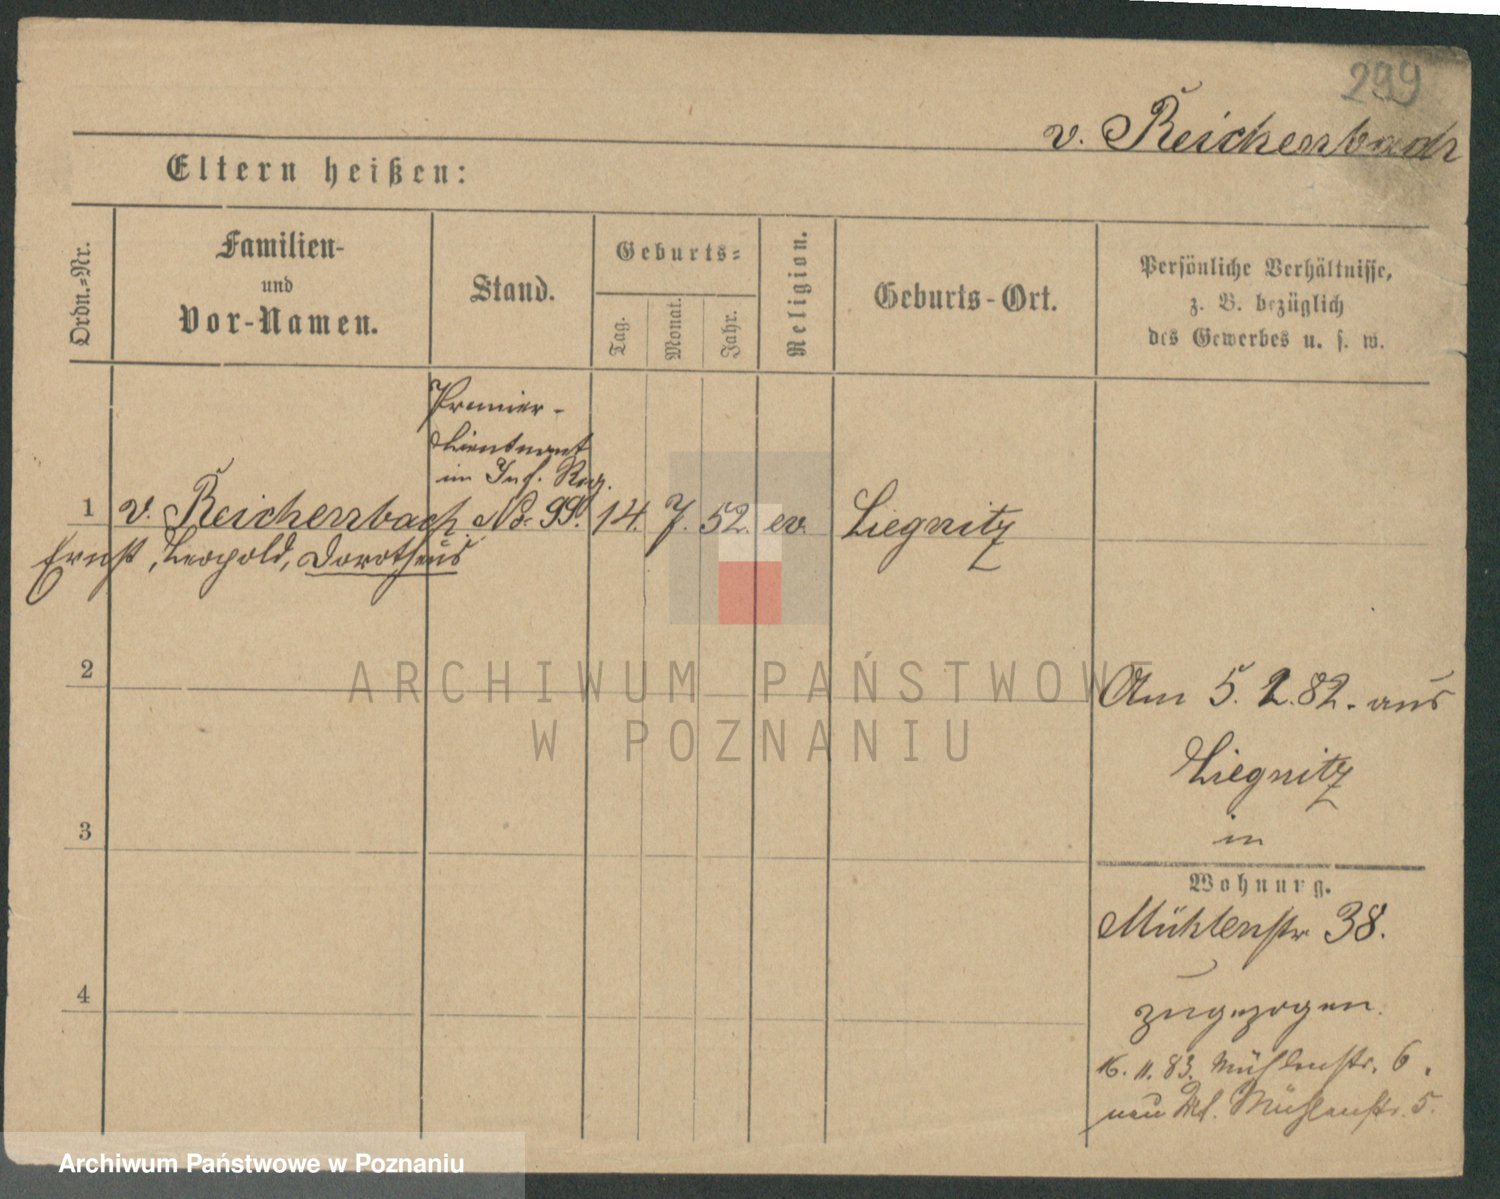 299
v. Reichenbach
Eltern heißen:
Ordn.-Nr.
Familien-
und
Vor-Namen.
Stand.
Geburts-
Tag.
Monat.
Jahr.
Religion.
Geburts-Ort.
Persönliche Verhältnisse,
z. B. bezüglich
des Gewerbes u. s. w.
Premier-
Lieutnant
im Inf. Reg.
1 v. Reichenbach No. 99. 14. 7. 52. ev. Liegnitz
Ernst, Leopold, Dorotheus
2
Am 5. 2. 82. aus
Liegnitz
3
in
Wohnung.
Mühlenstr 38.
4
zugezogen.
16. 11. 83. Mühlenstr. 6.
neu Mühlenstr. 5.
ARCHIWUM PAŃSTWOWE
W POZNANIU
Archiwum Państwowe w Poznaniu